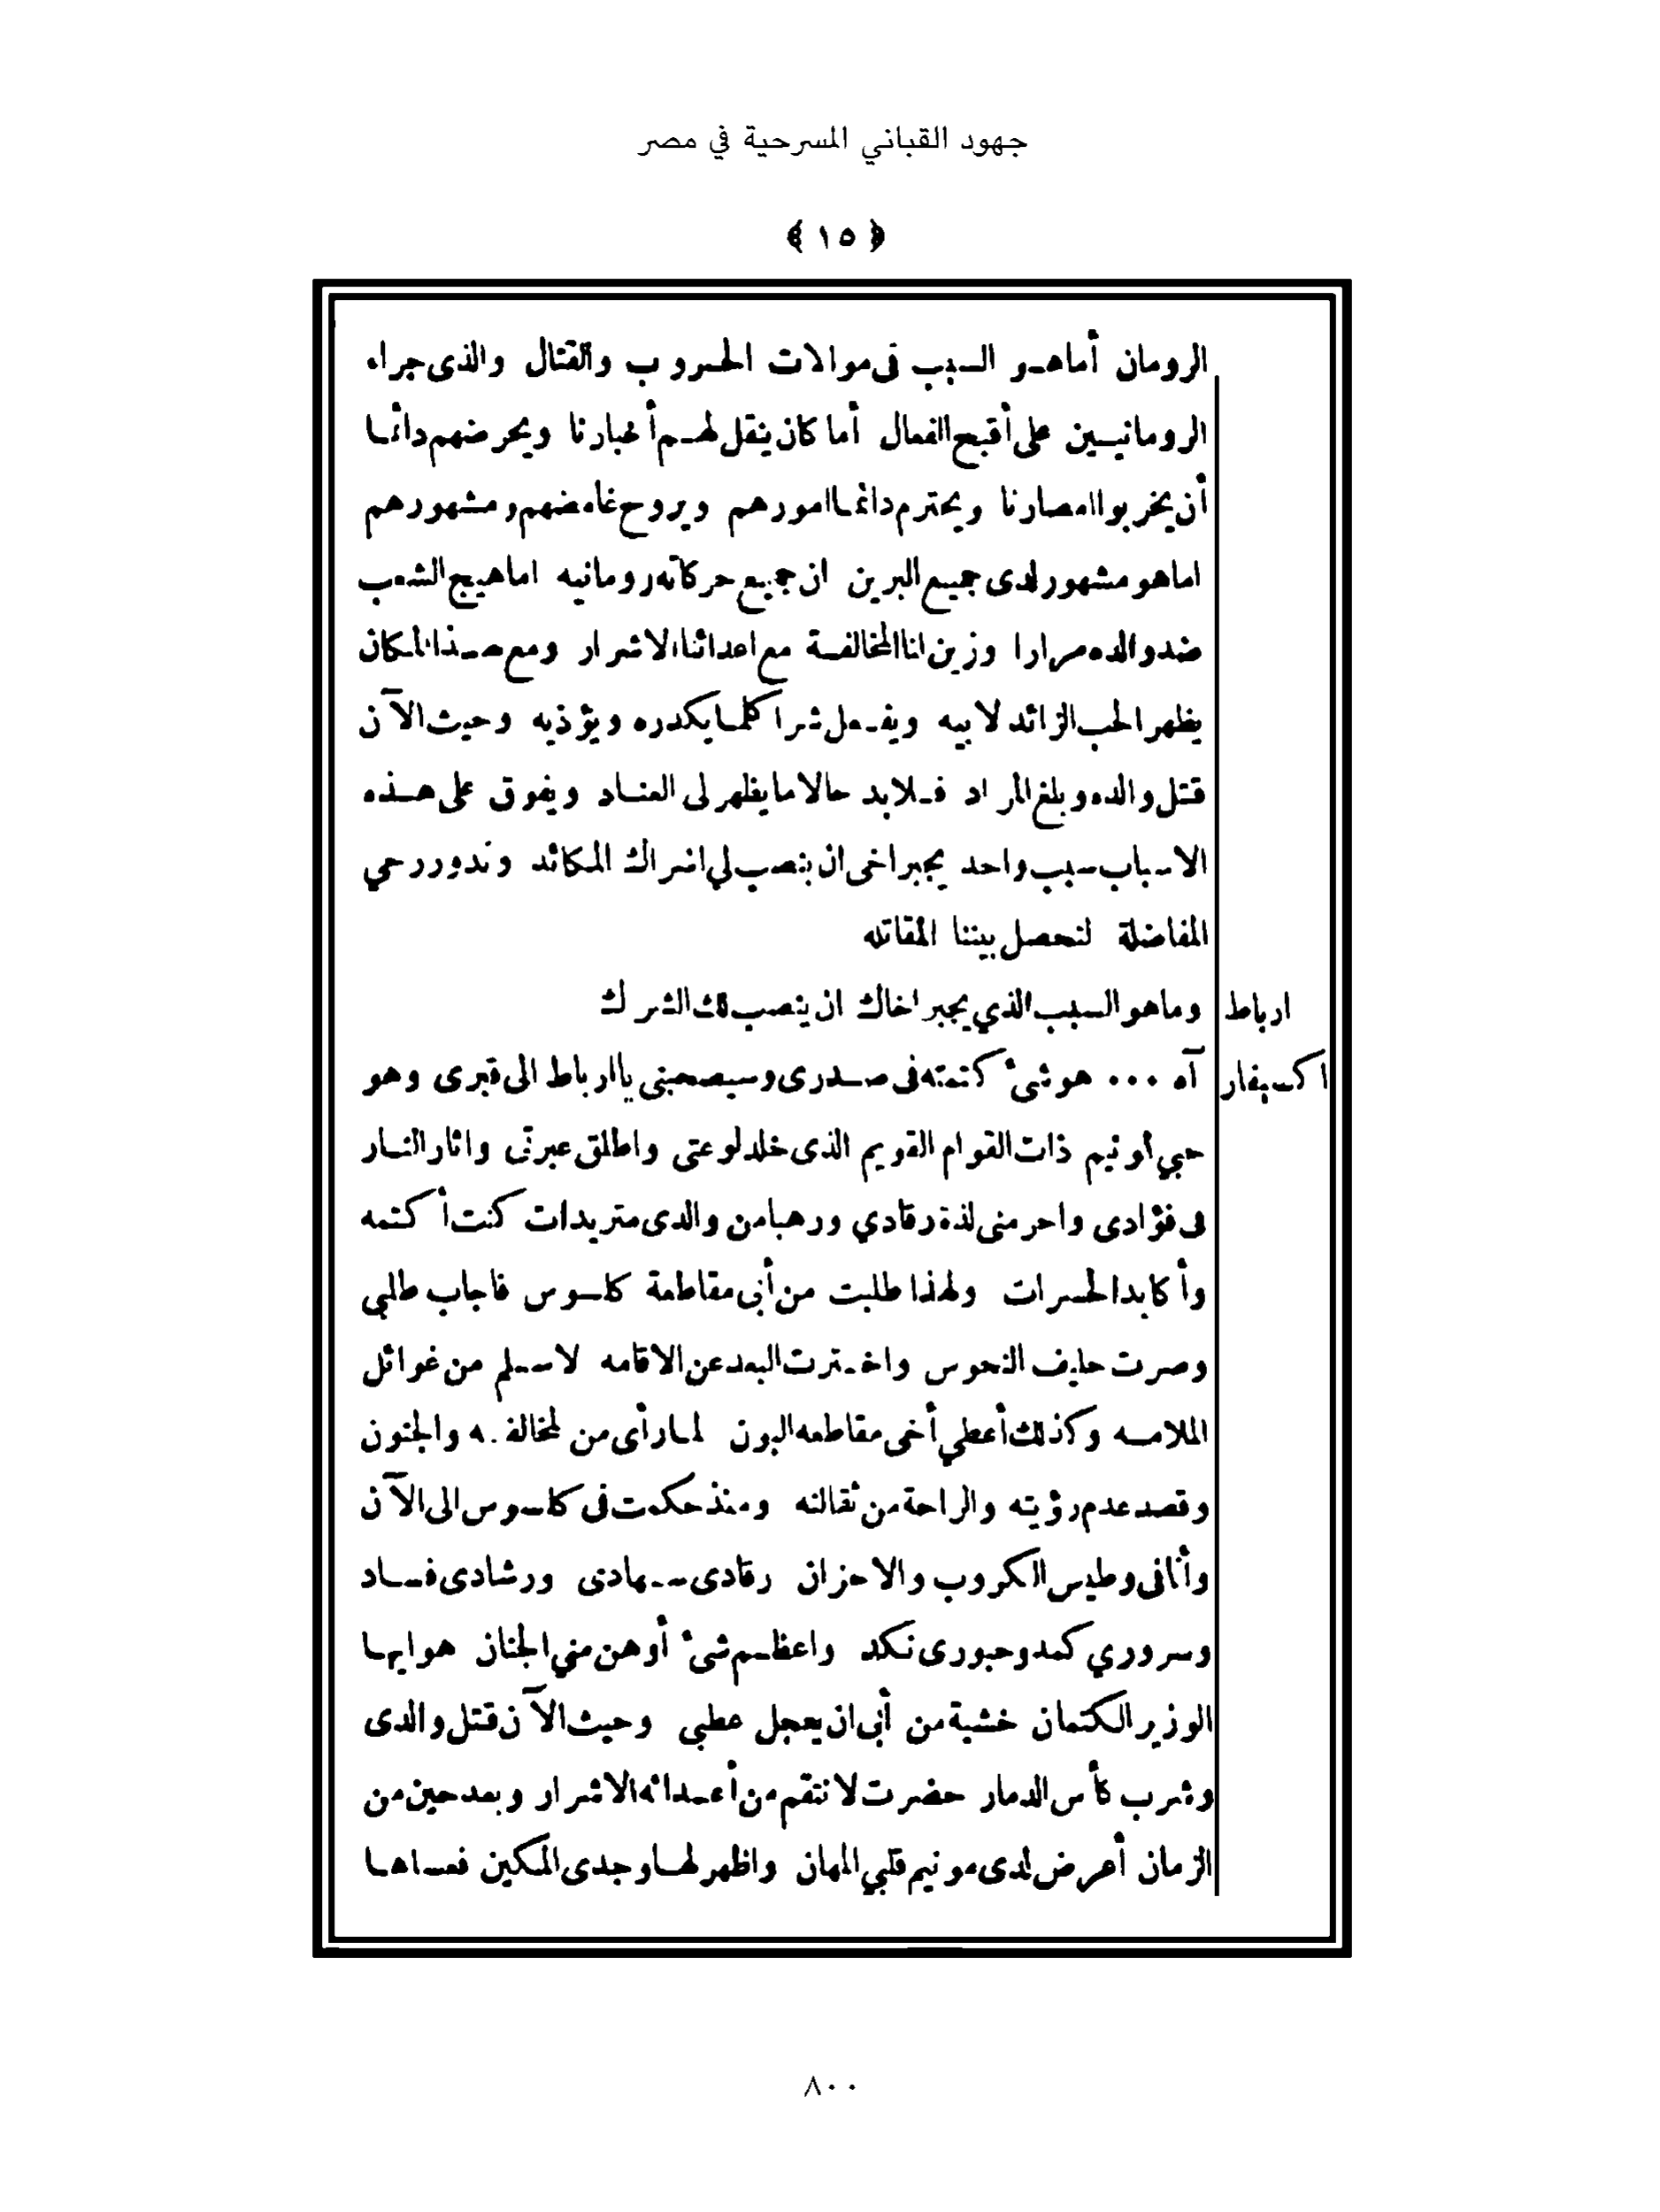 جهود القباني المسرحية في مصر
﴿ ١٥ ﴾
الرومان أما هو السبب فى موالات الحروب والقتال والذى جراء
الرومانيين على أقبح الفعال أما كان ينقل لهم أخبارنا ويحرضهم دائما
أن يخربوا امصارنا ويحترم دائما امورهم ويروح غامضهم ومشهورهم
اما هو مشهور لدى جميع البرين ان جميع حركاته رومانيه اما هيج الشعب
ضد والده مرارا وزين لنا المخالفة مع اعدائنا الاشرار ومع هذا المكان
يظهر الحب الزائد لابيه ويفعل شرا كلما يكدره ويؤذيه وحيث الآن
قتل والده وبلغ المراد فلا بد حالا ما يظهر لى العناد ويفوق على هذه
الاسباب سبب واحد يجبر اخى ان ينصب لي اشراك المكائد وندور رحي
المفاضلة لتحصل بيننا المقاتله
ارباط وما هو السبب الذي يجبر اخاك ان ينصب لك الشرك
اكسيفار آه ... هو شىء كتمته فى صدرى وسيصحبنى يا ارباط الى قبرى وهو
حبي لمونيم ذات القوام القويم الذى خلد لوعتى واطلق عبرتى واثار النار
فى فؤادى واحرمنى لذة رقادي ورهبا من والدى متريدات كنت أكتمه
وأكابد الحسرات ولهذا طلبت من أبى مقاطعة كلسوس فاجاب طلبي
وصرت حليف النحوس واخترت البعد عن الاقامه لاسلم من غوائل
الملامه وكذلك أعطي أخى مقاطعه البون لما رأى من مخالفه والجنون
وقصد عدم رؤيته والراحة من ثقالته ومنذ حكمت فى كلسوس الى الآن
وأنا فى وطيس الكروب والاحزان رقادى سهادى ورشادى فساد
وسروري كمد وحبورى نكد واعظم شىء أوهن مني الجنان هو ايها
الوزير الكتمان خشية من أبى ان يعجل عطبي وحيث الآن قتل والدى
وشرب كأس الدمار حضرت لانتقم من أعدائه الاشرار وبعد حين من
الزمان أعرض لدى مونيم قلبي المهان واظهر لها وجدى المكين فعساها
٨٠٠